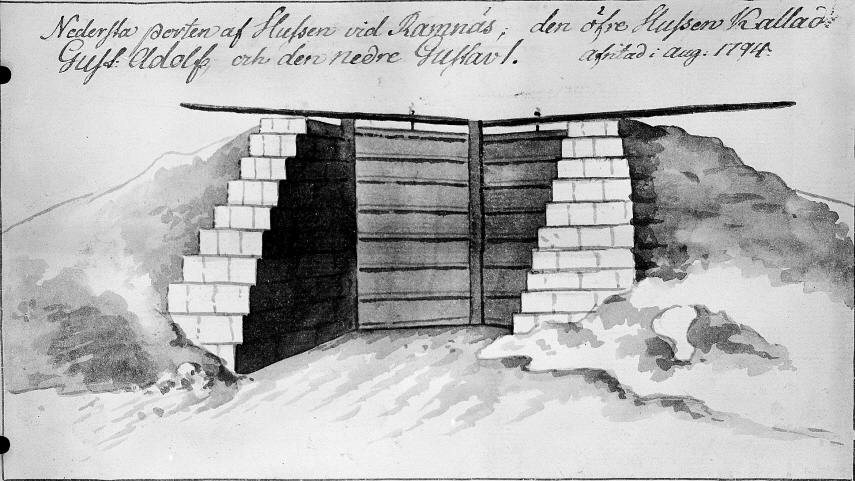 Nedersta porten af Slussen vid Ramnäs, den öfre Slussen Kallad:
Gust: Adolf, och den nedre Gustav I. afritad i aug: 1794.